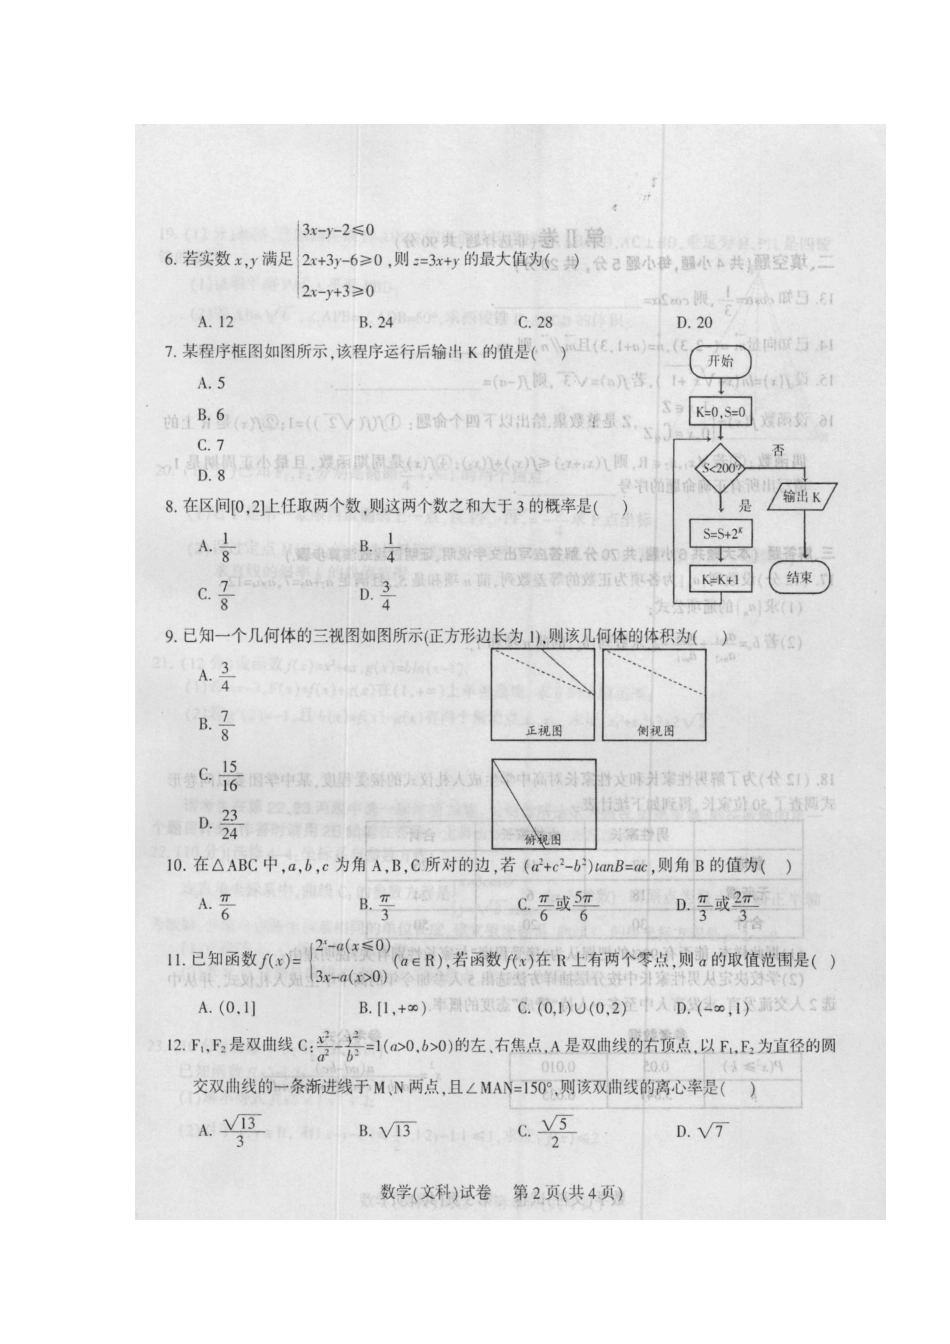 6. 若实数 x,y 满足 {3x-y-2≤0
2x+3y-6≥0 ,则 z=3x+y 的最大值为(    )
2x-y+3≥0
A. 12    B. 24    C. 28    D. 20
7. 某程序框图如图所示,该程序运行后输出 K 的值是(    )
A. 5
B. 6
C. 7
D. 8
开始
K=0,S=0
S<200?
否
是
输出 K
S=S+2^K
K=K+1
结束
8. 在区间[0,2]上任取两个数,则这两个数之和大于 3 的概率是(    )
A. 1/8    B. 1/4
C. 7/8    D. 3/4
9. 已知一个几何体的三视图如图所示(正方形边长为 1),则该几何体的体积为(    )
A. 3/4
B. 7/8
C. 15/16
D. 23/24
正视图    侧视图
俯视图
10. 在△ABC 中,a,b,c 为角 A,B,C 所对的边,若 (a²+c²-b²)tanB=ac,则角 B 的值为(    )
A. π/6    B. π/3    C. π/6或5π/6    D. π/3或2π/3
11. 已知函数 f(x)={2^x-a(x≤0)
3x-a(x>0) (a∈R),若函数 f(x)在 R 上有两个零点,则 a 的取值范围是(    )
A. (0,1]    B. [1,+∞)    C. (0,1)∪(0,2)    D. (-∞,1)
12. F₁,F₂ 是双曲线 C:x²/a²-y²/b²=1(a>0,b>0)的左、右焦点,A 是双曲线的右顶点,以 F₁,F₂ 为直径的圆
交双曲线的一条渐进线于 M、N 两点,且∠MAN=150°,则该双曲线的离心率是(    )
A. √13/3    B. √13    C. √5/2    D. √7
数学(文科)试卷  第 2 页(共 4 页)